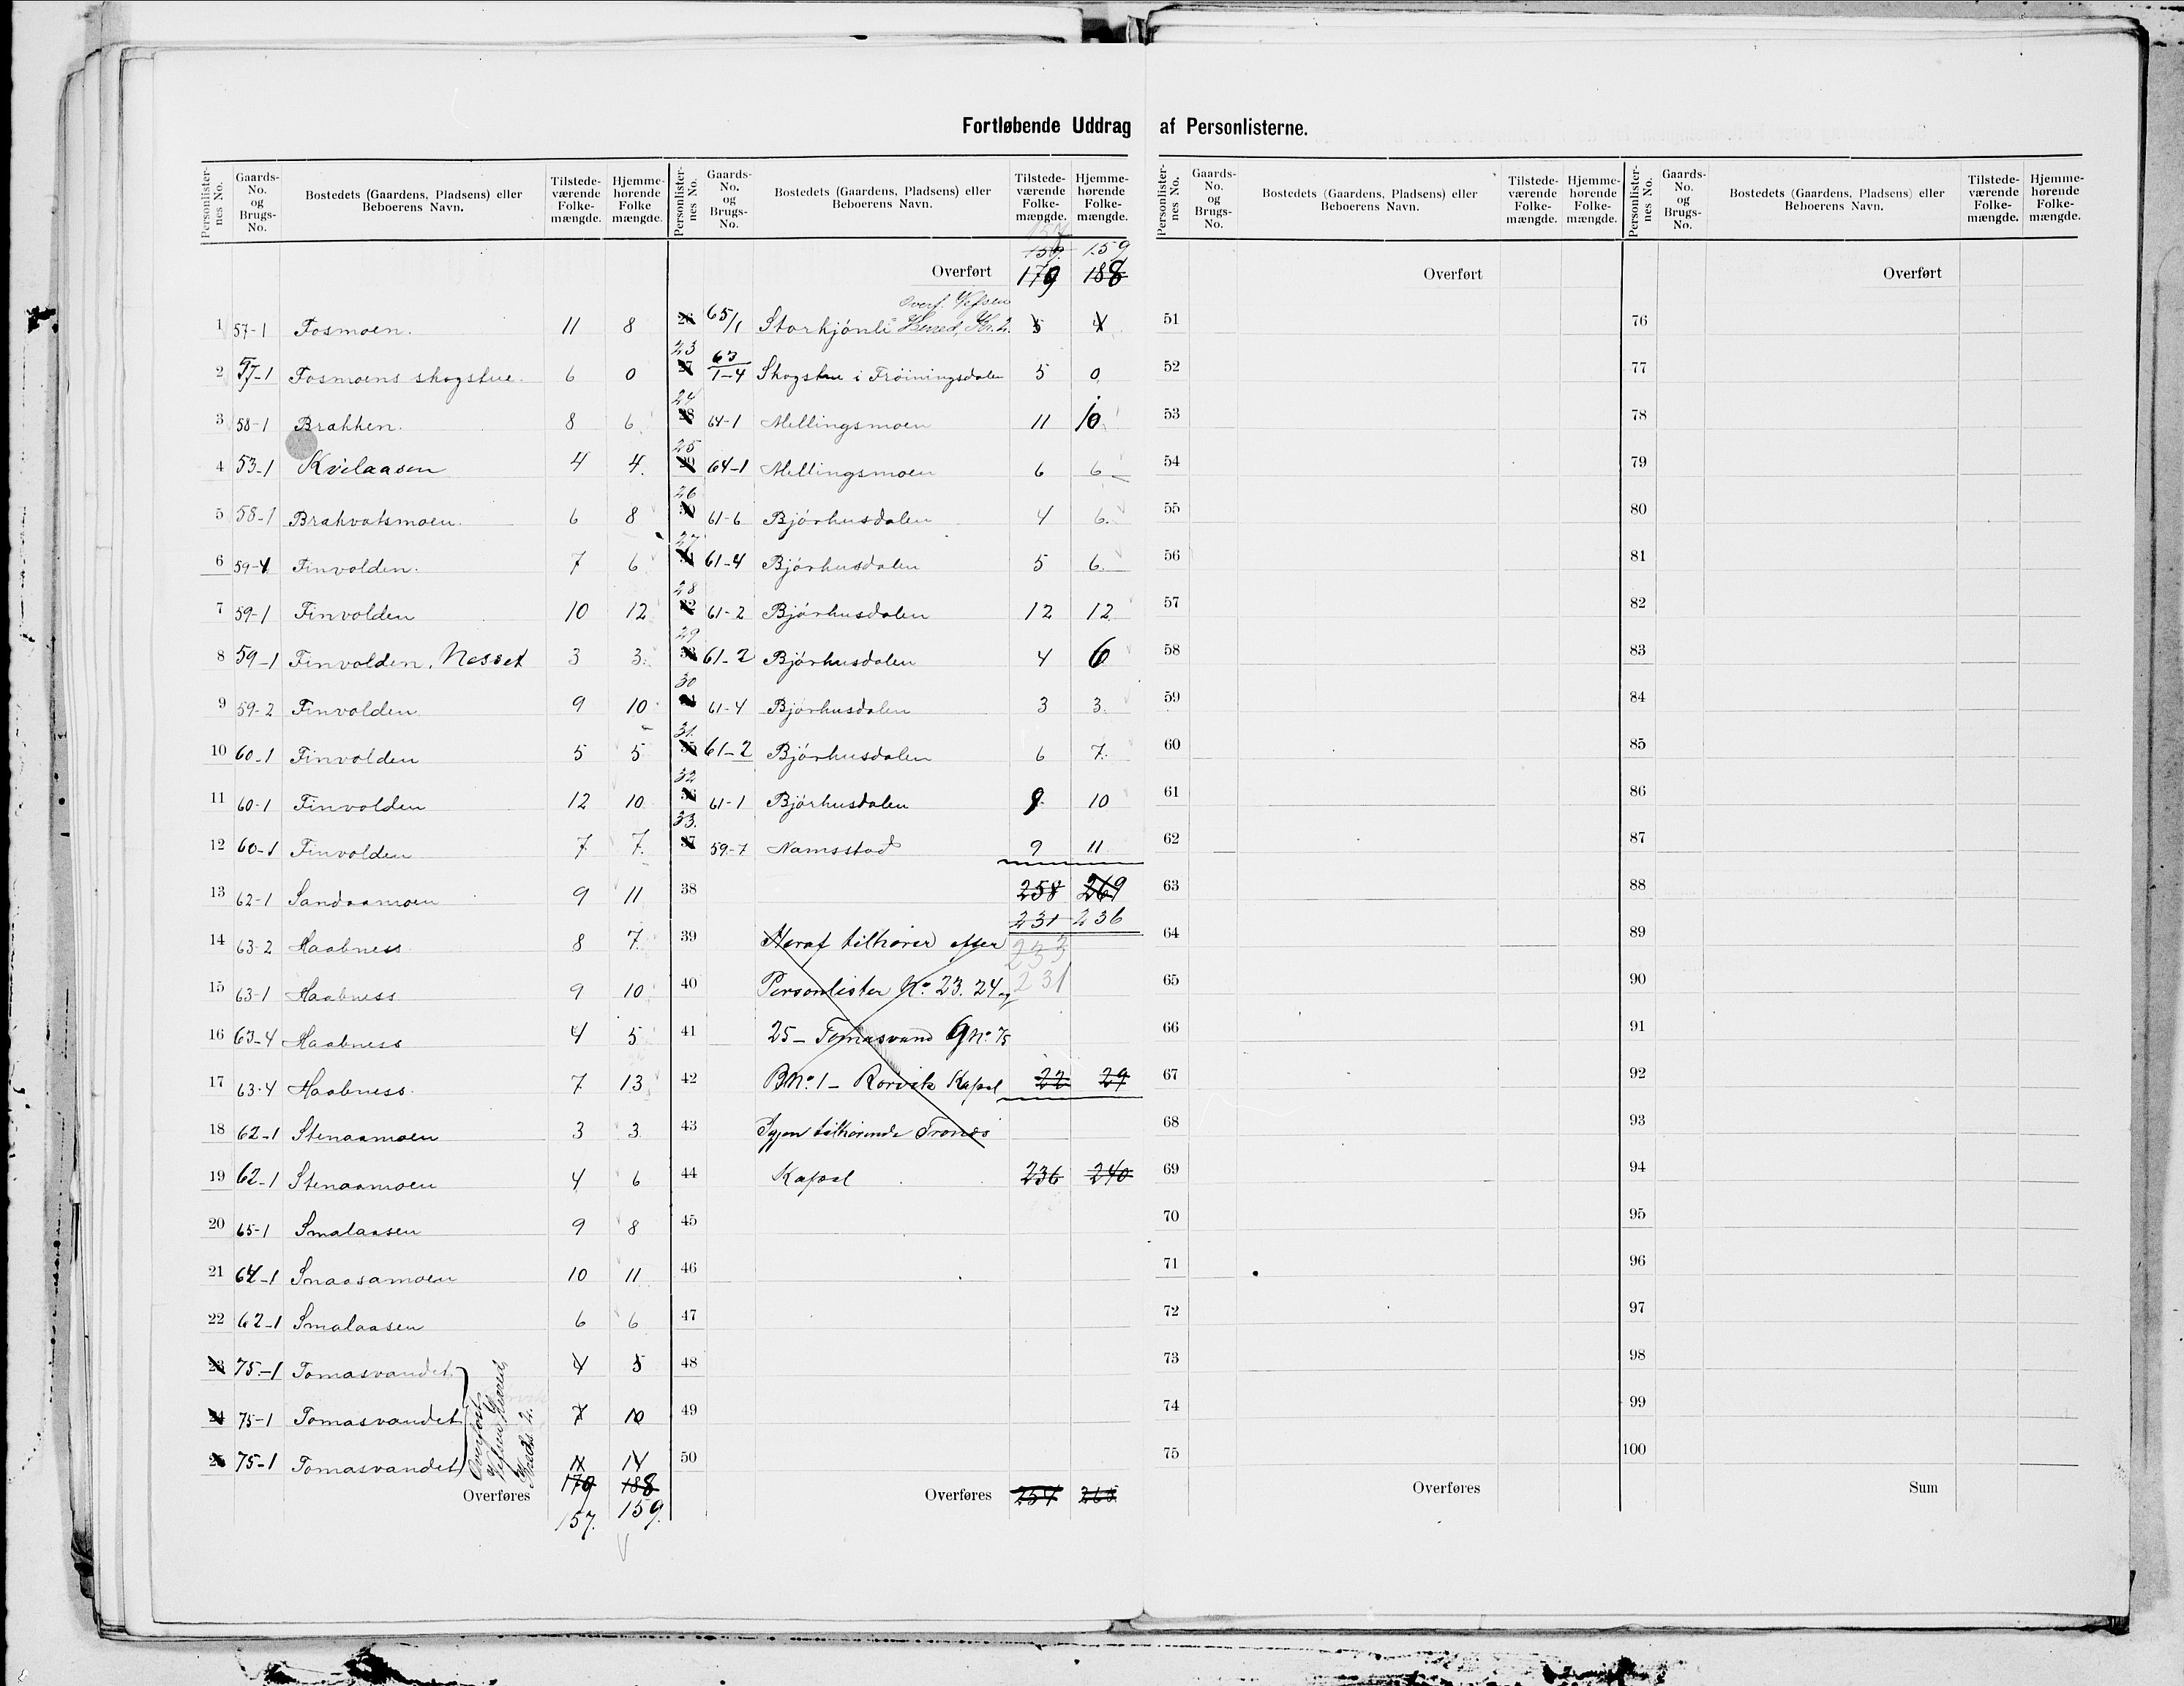 Fortløbende Uddrag af Personlisterne.
Personlister-nes No. Gaards-No. og Brugs-No. Bostedets (Gaardens, Pladsens) eller Beboerens Navn. Tilstede-værende Folke-mængde. Hjemme-hørende Folke mængde.
1 57-1 Fosmoen. 11 8
2 57-1 Fosmoens skogstue. 6 0
3 58-1 Brakken. 8 6
4 53-1 Kvilaasen 4 4.
5 58-1 Brakvatsmoen. 6 8
6 59-4 Finvolden. 7 6
7 59-1 Finvolden 10 12
8 59-1 Finvolden, Nesset 3 3.
9 59-2 Finvolden 9 10
10 60-1 Finvolden 5 5
11 60-1 Finvolden 12 10
12 60-1 Finvolden 7 7.
13 62-1 Sandaamoen 9 11
14 63-2 Haabness 8 7.
15 63-1 Haabness 9 10
16 63-4 Haabness 4 5
17 63-4 Haabness. 7 13
18 62-1 Stenaamoen 3 3
19 62-1 Stenaamoen 4 6
20 65-1 Smalaasen 9 8
21 64-1 Snaasamoen 10 11
22 62-1 Smalaasen 6 6
23 75-1 Tomasvandet 4 5
24 75-1 Tomasvandet 7 10
25 75-1 Tomasvandet 11 14
Overført
Overføres 179 188
157. 159.
Personlister-nes No. Gaards-No. og Brugs-No. Bostedets (Gaardens, Pladsens) eller Beboerens Navn. Tilstede-værende Folke-mængde. Hjemme-hørende Folke-mængde.
157
159. 159
Overført 179 188
26 65/1 Storkjønli Overf. Vefsen Herred, Kr. 2. 5 4
23 27 63/1-4 Skogstue i Frøiningsdalen 5 0
24 28 64-1 Mellingsmoen 11 10
25 29 64-1 Mellingsmoen 6 6
26 30 61-6 Bjørhusdalen 4 6.
27 31 61-4 Bjørhusdalen 5 6.
28 32 61-2 Bjørhusdalen 12 12
29 33 61-2 Bjørhusdalen 4 6
30 34 61-4 Bjørhusdalen 3 3.
31. 35 61-2 Bjørhusdalen 6 7.
32 36 61-1 Bjørhusdalen 9 10
33. 37 59-7 Namsstad 9 11
38 258 269
231 236
39 Heraf tilhører efter 233
40 Personlister No. 23. 24 og 231
41 25 - Tomasvand GNo. 75
42 BNo. 1 - Rørvik Kapel 22 29
43 Igjen tilhørende Trones
44 Kapel 236 240
45
46
47
48
49
50
Overføres 257 265
Personlister-nes No. Gaards-No. og Brugs-No. Bostedets (Gaardens, Pladsens) eller Beboerens Navn. Tilstede-værende Folke-mængde. Hjemme-hørende Folke-mængde.
Overført
51
52
53
54
55
56
57
58
59
60
61
62
63
64
65
66
67
68
69
70
71
72
73
74
75
Overføres
Personlister-nes No. Gaards-No. og Brugs-No. Bostedets (Gaardens, Pladsens) eller Beboerens Navn. Tilstede-værende Folke-mængde. Hjemme-hørende Folke-mængde.
Overført
76
77
78
79
80
81
82
83
84
85
86
87
88
89
90
91
92
93
94
95
96
97
98
99
100
Sum